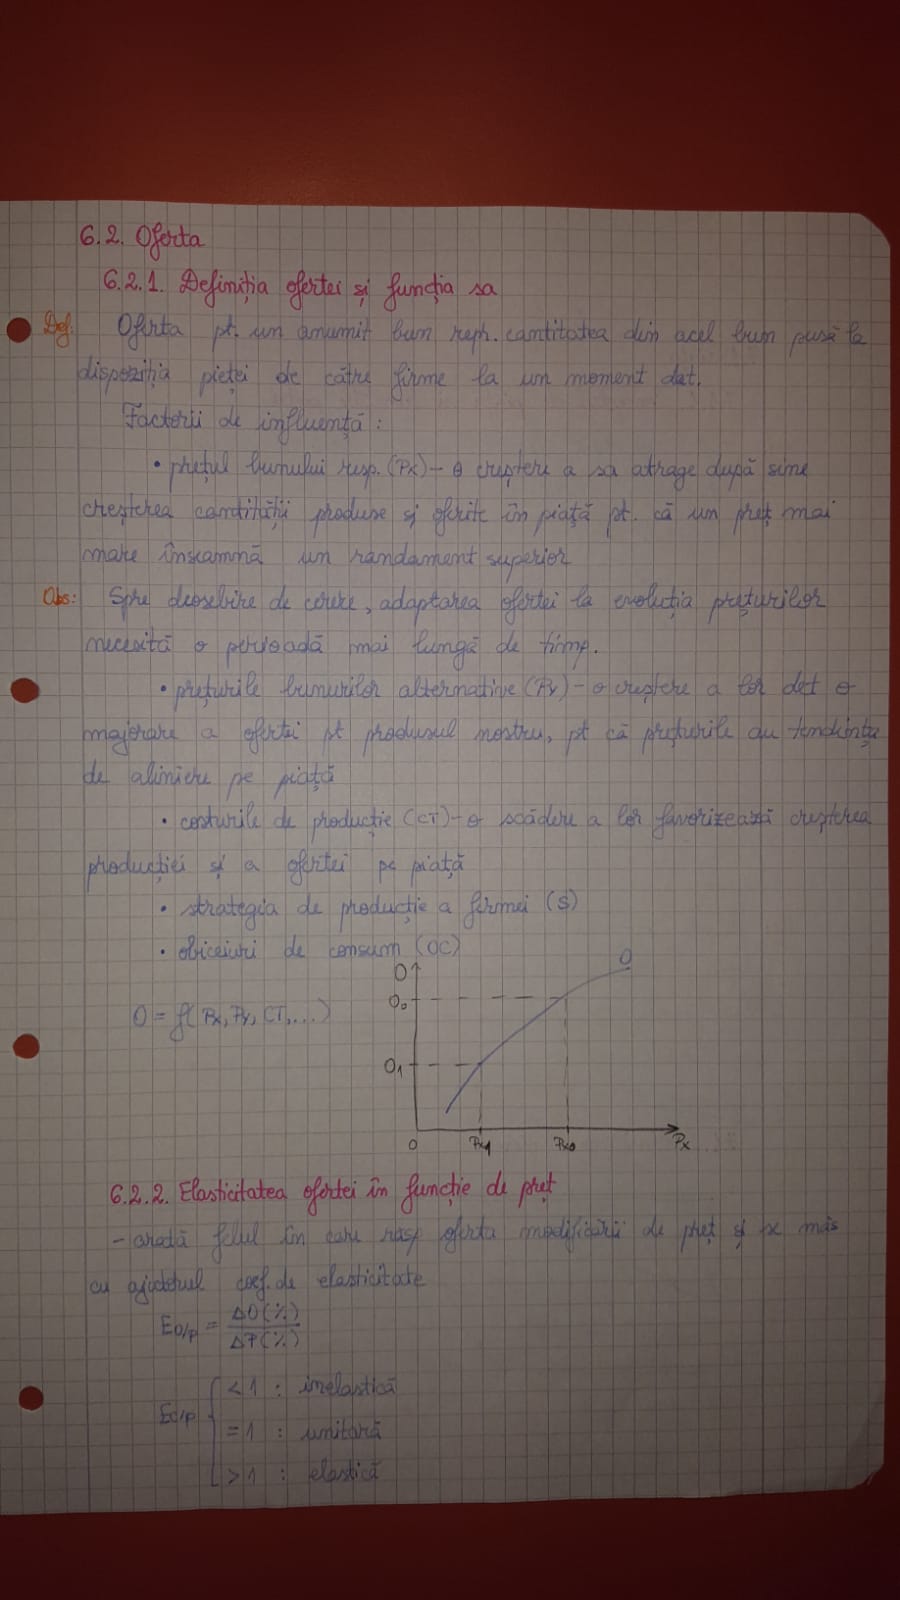 6.2. Oferta
6.2.1. Definiția ofertei și funcția sa
Def: Oferta pt. un anumit bun repr. cantitatea din acel bun pusă la
dispoziția pieței de către firme la un moment dat.
Factorii de influență:
• prețul bunului resp. (Px) - o creștere a sa atrage după sine
creșterea cantității produse și oferite în piață pt. că un preț mai
mare însamnă un randament superior
Obs: Spre deosebire de cerere, adaptarea ofertei la evoluția prețurilor
necesită o perioadă mai lungă de timp.
• prețurile bunurilor alternative (Py) - o creștere a lor det o
majorare a ofertei pt produsul nostru, pt că prețurile au tendințe
de aliniere pe piață
• costurile de producție (CT) - o scădere a lor favorizează creșterea
producției și a ofertei pe piață
• strategia de producție a firmei (S)
• obiceiuri de consum (OC)
O = f(Px, Py, CT, ...)
O
O0
O1
O
O
Px1
Px0
Px
6.2.2. Elasticitatea ofertei în funcție de preț
- arată felul în care rasp oferta modificării de preț și se măs
cu ajutorul coef. de elasticitate
Eo/p = ΔO(%)
ΔP(%)
Eo/p { < 1 : inelastică
= 1 : unitară
> 1 : elastică